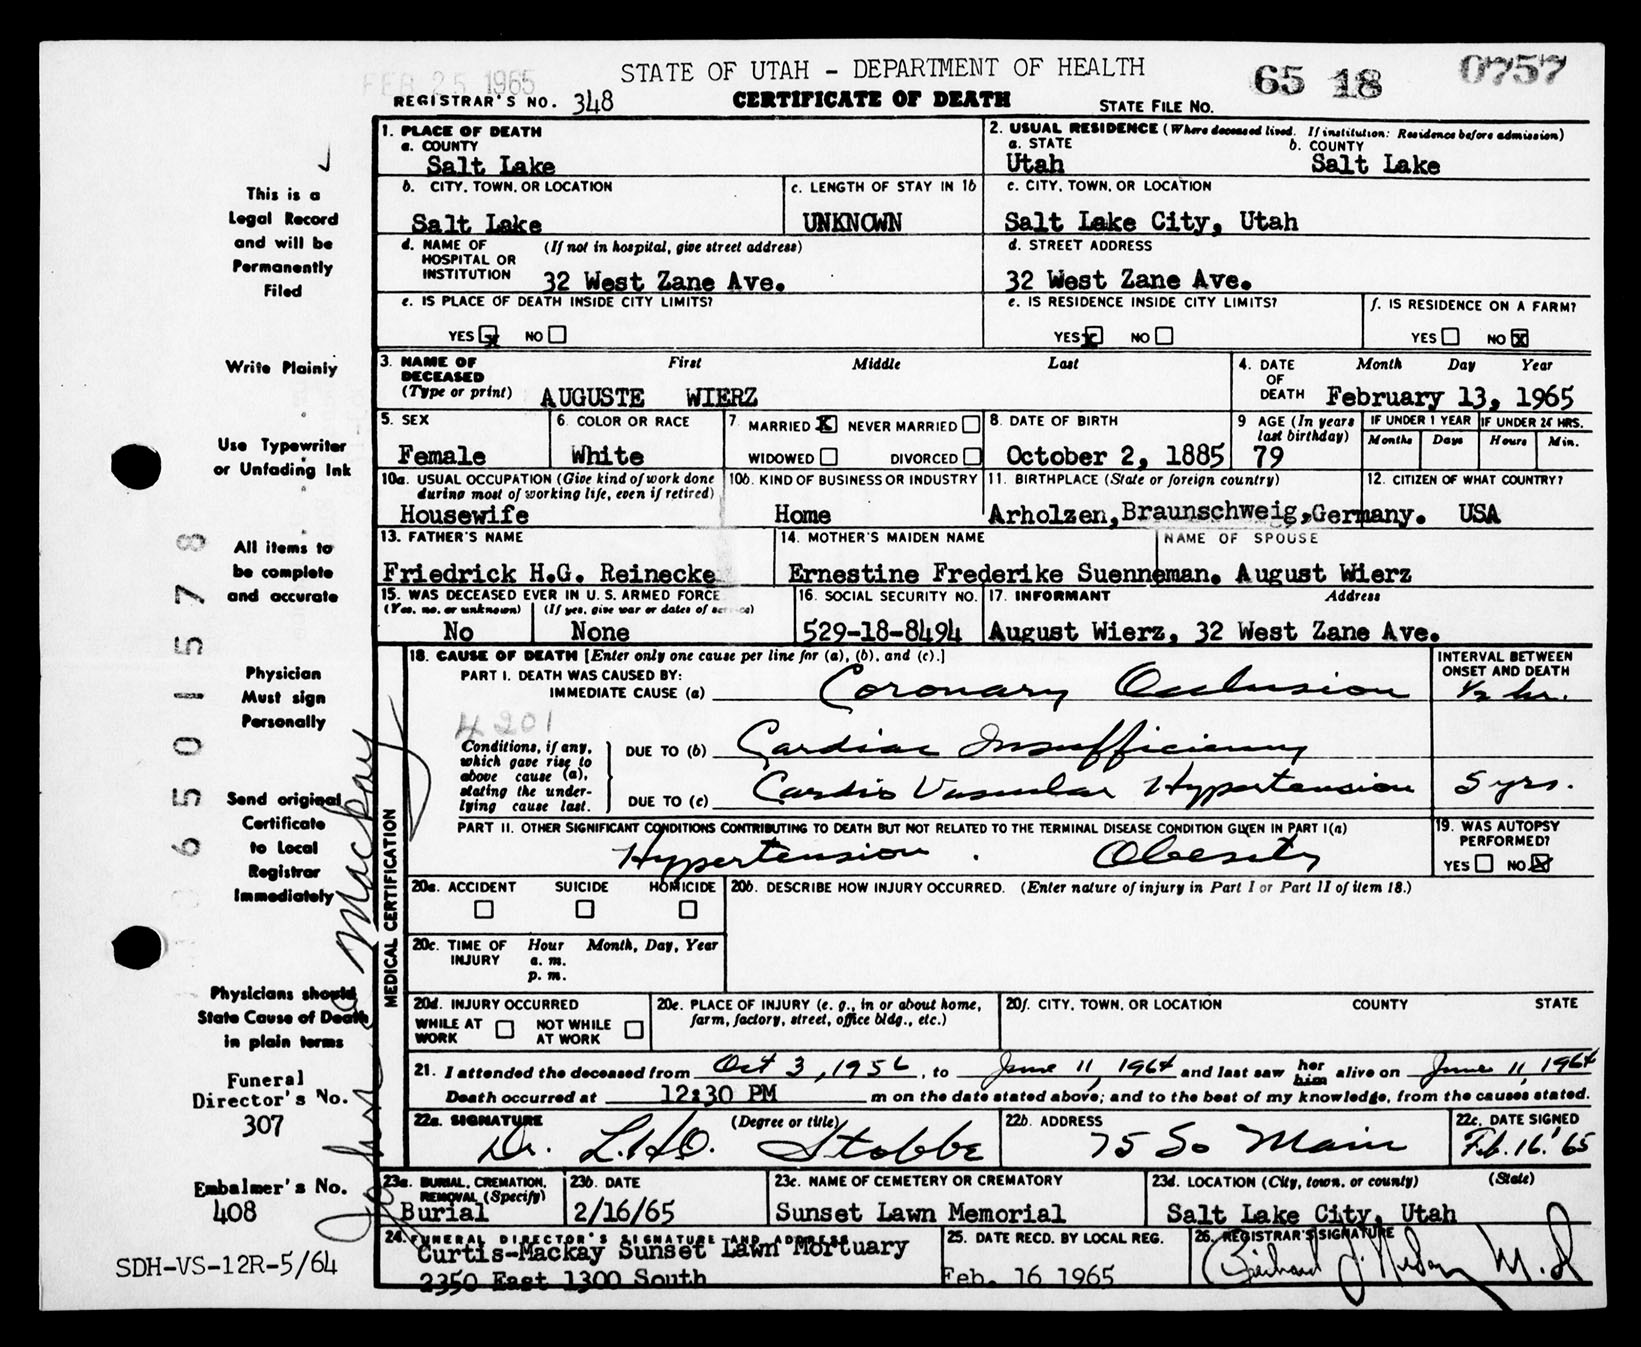 FEB 25 1965
STATE OF UTAH - DEPARTMENT OF HEALTH
65 18 0757
REGISTRAR'S NO. 348
CERTIFICATE OF DEATH
STATE FILE NO.
1. PLACE OF DEATH
a. COUNTY
Salt Lake
2. USUAL RESIDENCE (Where deceased lived. If institution: Residence before admission)
a. STATE b. COUNTY
Utah Salt Lake
b. CITY, TOWN, OR LOCATION
Salt Lake
c. LENGTH OF STAY IN 1b
UNKNOWN
c. CITY, TOWN, OR LOCATION
Salt Lake City, Utah
d. NAME OF HOSPITAL OR INSTITUTION (If not in hospital, give street address)
32 West Zane Ave.
d. STREET ADDRESS
32 West Zane Ave.
e. IS PLACE OF DEATH INSIDE CITY LIMITS?
YES x NO
e. IS RESIDENCE INSIDE CITY LIMITS?
YES x NO
f. IS RESIDENCE ON A FARM?
YES NO x
3. NAME OF DECEASED (Type or print) First Middle Last
AUGUSTE WIERZ
4. DATE OF DEATH Month Day Year
February 13, 1965
5. SEX
Female
6. COLOR OR RACE
White
7. MARRIED x NEVER MARRIED
WIDOWED DIVORCED
8. DATE OF BIRTH
October 2, 1885
9 AGE (In years last birthday)
79
IF UNDER 1 YEAR IF UNDER 24 HRS.
Months Days Hours Min.
10a. USUAL OCCUPATION (Give kind of work done during most of working life, even if retired)
Housewife
10b. KIND OF BUSINESS OR INDUSTRY
Home
11. BIRTHPLACE (State or foreign country)
Arholzen, Braunschweig, Germany.
12. CITIZEN OF WHAT COUNTRY?
USA
13. FATHER'S NAME
Friedrick H.G. Reinecke
14. MOTHER'S MAIDEN NAME
Ernestine Frederike Suenneman.
NAME OF SPOUSE
August Wierz
15. WAS DECEASED EVER IN U. S. ARMED FORCE
(Yes, no, or unknown) (If yes, give war or dates of service)
No None
16. SOCIAL SECURITY NO.
529-18-8494
17. INFORMANT Address
August Wierz, 32 West Zane Ave.
18. CAUSE OF DEATH [Enter only one cause per line for (a), (b), and (c).]
INTERVAL BETWEEN ONSET AND DEATH
PART I. DEATH WAS CAUSED BY:
IMMEDIATE CAUSE (a) Coronary Occlusion 1/2 hr.
4201
Conditions, if any, which gave rise to above cause (a), stating the underlying cause last.
DUE TO (b) Cardiac Insufficiency
DUE TO (c) Cardio Vascular Hypertension 5 yrs.
PART II. OTHER SIGNIFICANT CONDITIONS CONTRIBUTING TO DEATH BUT NOT RELATED TO THE TERMINAL DISEASE CONDITION GIVEN IN PART I(a)
Hypertension . Obesity
19. WAS AUTOPSY PERFORMED?
YES NO x
MEDICAL CERTIFICATION
20a. ACCIDENT SUICIDE HOMICIDE
20b. DESCRIBE HOW INJURY OCCURRED. (Enter nature of injury in Part I or Part II of item 18.)
20c. TIME OF INJURY Hour Month, Day, Year
a. m.
p. m.
20d. INJURY OCCURRED
WHILE AT WORK NOT WHILE AT WORK
20e. PLACE OF INJURY (e. g., in or about home, farm, factory, street, office bldg., etc.)
20f. CITY, TOWN, OR LOCATION COUNTY STATE
21. I attended the deceased from Oct 3, 1956, to June 11, 1964 and last saw her him alive on June 11, 1964
Death occurred at 12:30 PM m on the date stated above; and to the best of my knowledge, from the causes stated.
22a. SIGNATURE (Degree or title)
Dr. L.H.O. Stobbe
22b. ADDRESS
75 So Main
22c. DATE SIGNED
Feb. 16. '65
23a. BURIAL, CREMATION, REMOVAL (Specify)
Burial
23b. DATE
2/16/65
23c. NAME OF CEMETERY OR CREMATORY
Sunset Lawn Memorial
23d. LOCATION (City, town, or county) (State)
Salt Lake City, Utah
24. FUNERAL DIRECTOR'S SIGNATURE AND ADDRESS
Curtis-Mackay Sunset Lawn Mortuary
2350 East 1300 South
25. DATE RECD. BY LOCAL REG.
Feb. 16 1965
26. REGISTRAR'S SIGNATURE
M.D
This is a
Legal Record
and will be
Permanently
Filed
Write Plainly
Use Typewriter
or Unfading Ink
All items to
be complete
and accurate
Physician
Must sign
Personally
Send original
Certificate
to Local
Registrar
Immediately
Physicians should
State Cause of Death
in plain terms
Funeral
Director's No.
307
Embalmer's No.
408
SDH-VS-12R-5/64
6501578
Mackay